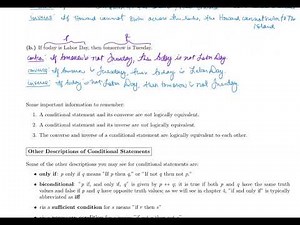 inverse If Howard cannot swim across the lake, the Howard cannot swim to the
Island
(b.) If today is Labor Day, then tomorrow is Tuesday.
contra: If tomorrow is not Tuesday, then today is not Labor Day
converse: If tomorrow is Tuesday, then today is Labor Day.
inverse: If today is not Labor Day, then tomorrow is not Tuesday
Some important information to remember:
1. A conditional statement and its converse are not logically equivalent.
2. A conditional statement and its inverse are not logically equivalent.
3. The converse and inverse of a conditional statement are logically equivalent to each other.
Other Descriptions of Conditional Statements
Some of the other descriptions you may see for conditional statements are:
• only if: p only if q means "If p then q," or "If not q then not p."
• biconditional: "p if, and only if, q" is given by p ↔ q; it is true if both p and q have the same truth
values and false if p and q have opposite truth values; as we will see in chapter 4, "if and only if" is typically
abbreviated as iff
• r is a sufficient condition for s means "if r then s"